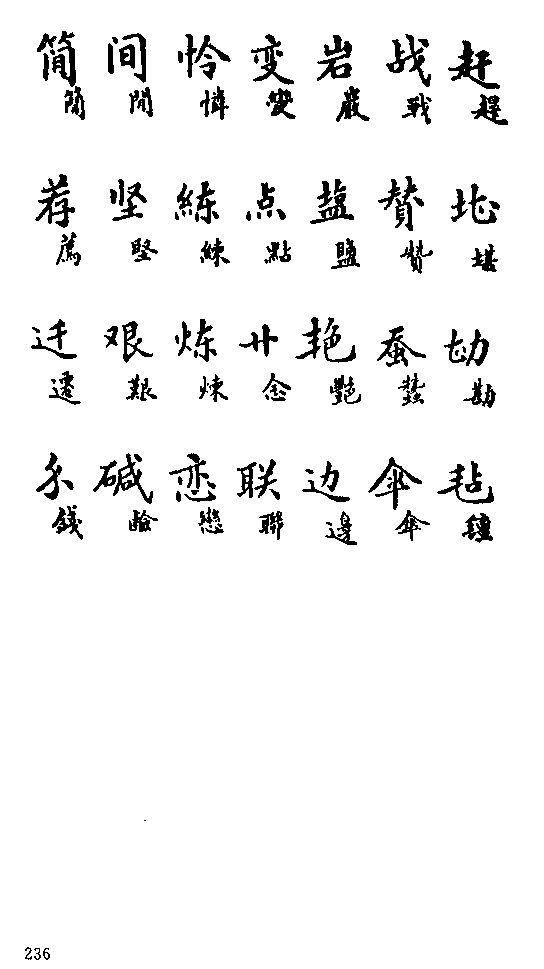 简 间 怜 变 岩 战 赶
簡 間 憐 變 巖 戰 趕
荐 坚 練 点 塩 賛
薦 堅 練 點 鹽 贊 堪
迁 艰 炼 廿 艳 蚕
遷 艱 煉 念 艷 蠶 勘
碱 恋 联 边 伞 毡
錢 鹼 戀 聯 邊 傘 氈
236